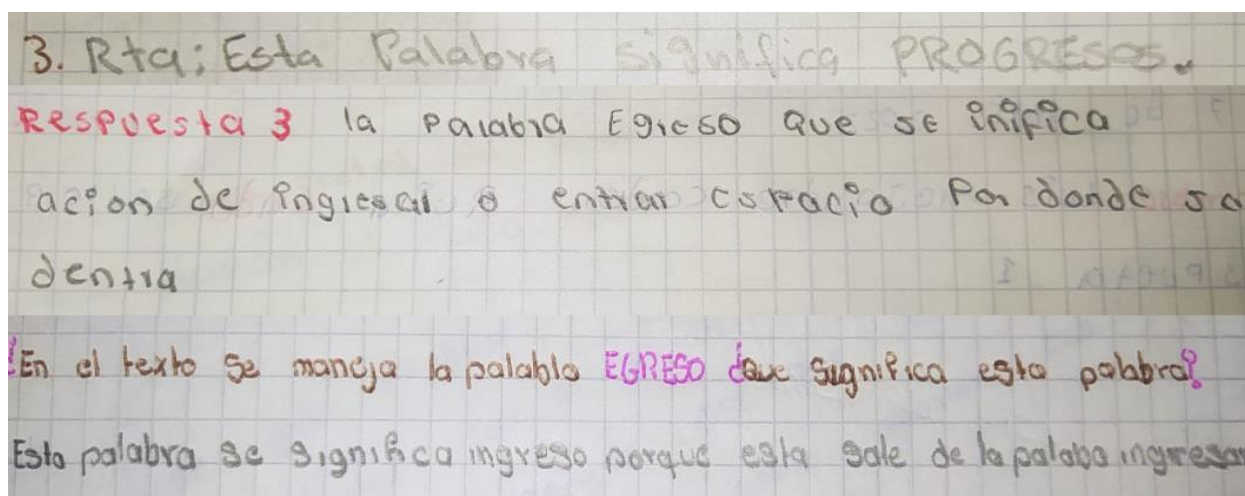 3. Rta: Esta Palabra significa PROGRESOS.
Respuesta 3 la palabra Egreso que se inifica
acion de ingresar o entrar espacio Por donde se
dentra
¿En el texto se maneja la palablo EGRESO ¿que significa esta palabra?
Esta palabra se significa ingreso porque esta sale de la palaba ingresar